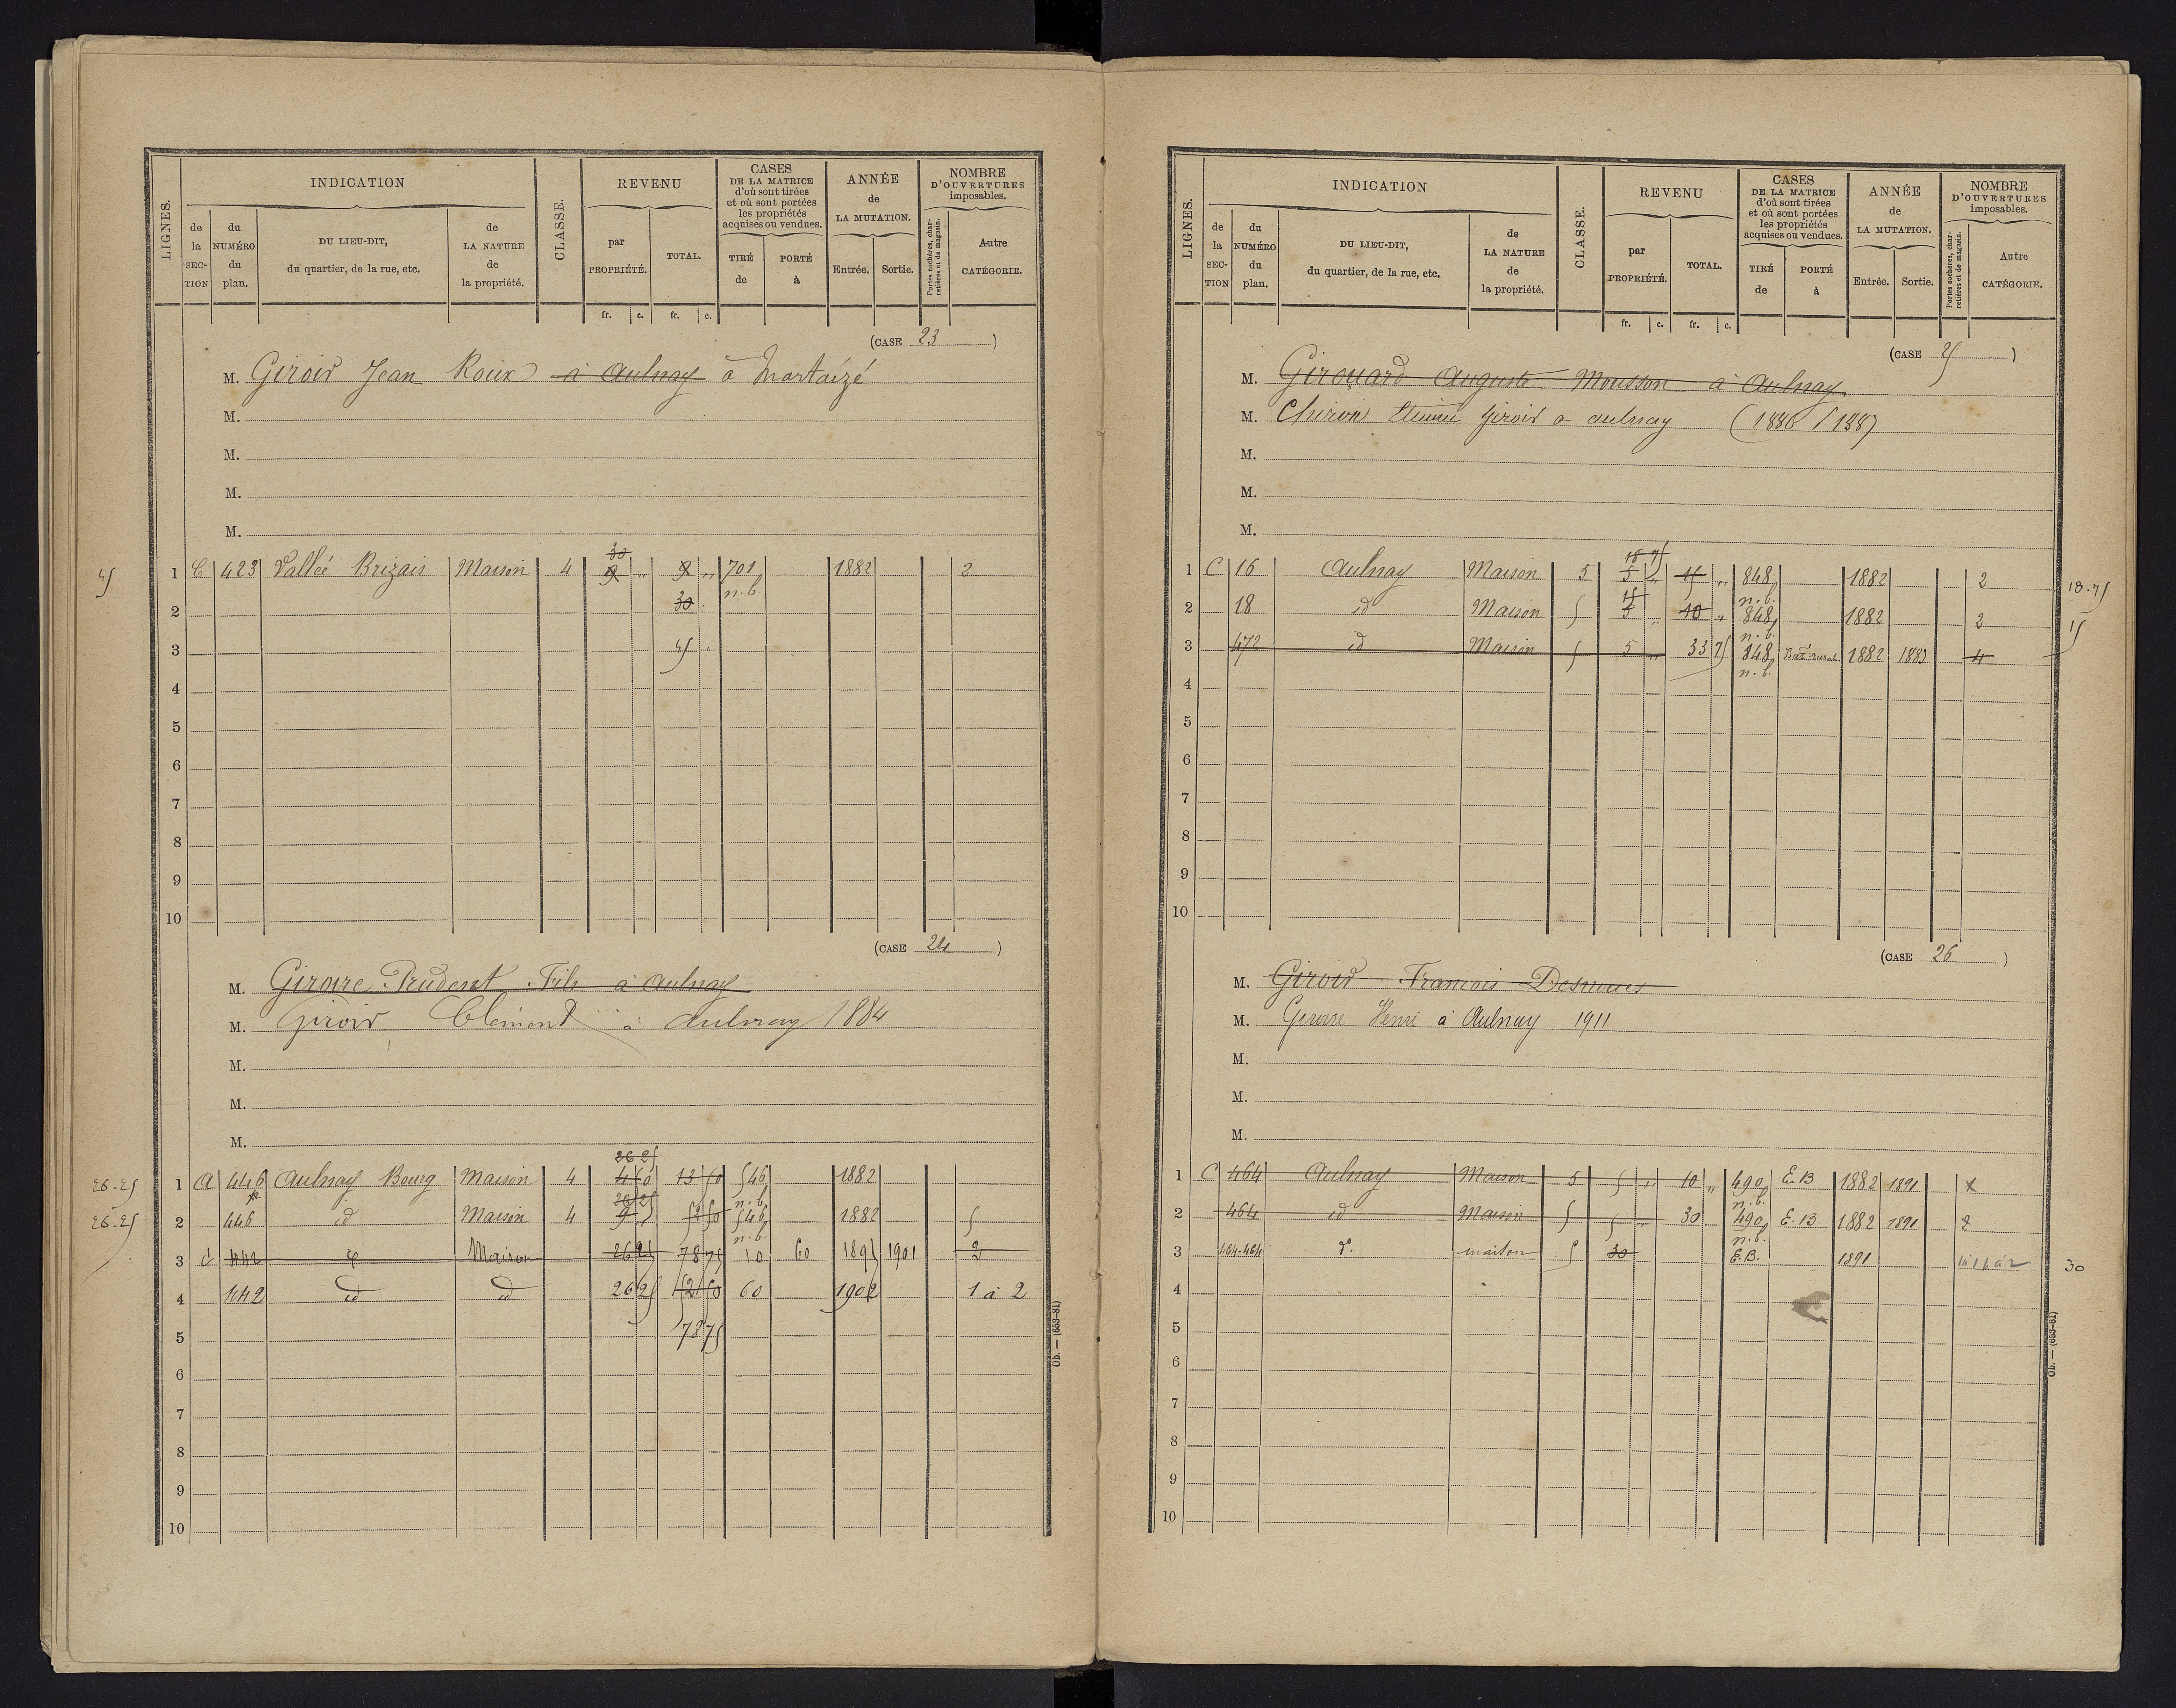 LIGNES.
INDICATION
de la SECTION
du NUMÉRO du plan.
DU LIEU-DIT, du quartier, de la rue, etc.
de LA NATURE de la propriété.
CLASSE.
REVENU
par PROPRIÉTÉ.
TOTAL.
fr. c. fr. c.
CASES DE LA MATRICE d'où sont tirées et où sont portées les propriétés acquises ou vendues.
TIRÉ de
PORTÉ à
ANNÉE de LA MUTATION.
Entrée. Sortie.
NOMBRE D'OUVERTURES imposables.
Portes cochères, charretières et de magasin.
Autre CATÉGORIE.
(CASE 23)
M. Giroir Jean Roux à Aulnay à Martaizé
M.
M.
M.
M.
30
45 1 C 423 Vallée Brizais Maison 4 9 " 9 " 701 1882 2
2 30 n.b.
3 45
4
5
6
7
8
9
10
(CASE 24)
M. Giroire Prudent Fils à Aulnay
M. Giroir Clément à Aulnay 1884
M.
M.
M.
26 25
26.25 1 A 446 Aulnay Bourg Maison 4 4 50 13 50 546 1882
26 25 n.b.
26.25 2 446 id Maison 4 9 " 52 50 546 1882 5
n.b.
3 442 Maison 26 25 78 75 10 60 1895 1901 2
4 442 id id 26 25 52 50 60 1902 1 à 2
5 78 75
6
7
8
9
10
Ob. — (653-81)
LIGNES.
INDICATION
de la SECTION
du NUMÉRO du plan.
DU LIEU-DIT, du quartier, de la rue, etc.
de LA NATURE de la propriété.
CLASSE.
REVENU
par PROPRIÉTÉ.
TOTAL.
fr. c. fr. c.
CASES DE LA MATRICE d'où sont tirées et où sont portées les propriétés acquises ou vendues.
TIRÉ de
PORTÉ à
ANNÉE de LA MUTATION.
Entrée. Sortie.
NOMBRE D'OUVERTURES imposables.
Portes cochères, charretières et de magasin.
Autre CATÉGORIE.
(CASE 25)
M. Girouard Auguste Mousson à Aulnay
M. Chiron Etienne Giroir à aulnay (1886 / 1887)
M.
M.
M.
18 75
1 C 16 Aulnay Maison 5 5 " 15 " 848 1882 2 18.75
15 n.b.
2 18 id Maison 5 5 " 10 " 848 1882 2 15
n.b.
3 472 id Maison 5 5 " 33 75 848 Bat. rural 1882 1883 4
n.b.
4
5
6
7
8
9
10
(CASE 26)
M. Giroir Francois Desnoues
M. Giroire Henri à Aulnay 1911
M.
M.
M.
1 C 464 Aulnay Maison 5 5 " 10 " 490 E.B 1882 1891
n.b.
2 464 id Maison 5 5 " 30 490 E.B 1882 1891 2
n.b.
3 464-464 d°. maison 5 30 E.B. 1891 30
4
5
6
7
8
9
10
Ob. — (653-81)